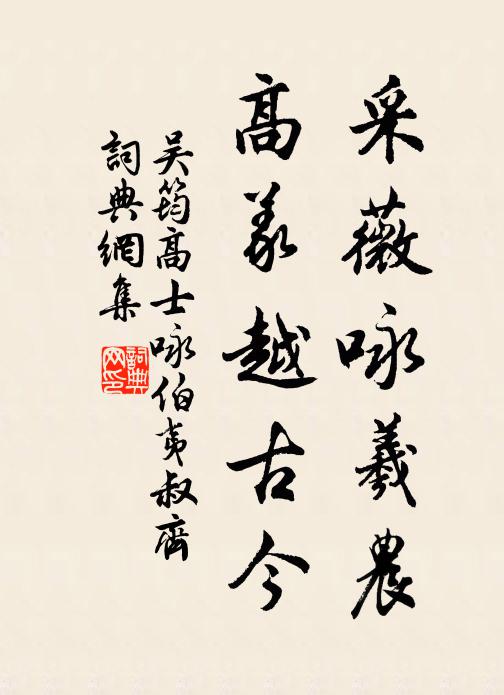 采薇咏羲農
高義越古今
吴筠高士咏伯夷叔齊
詞典網集
詞典網印